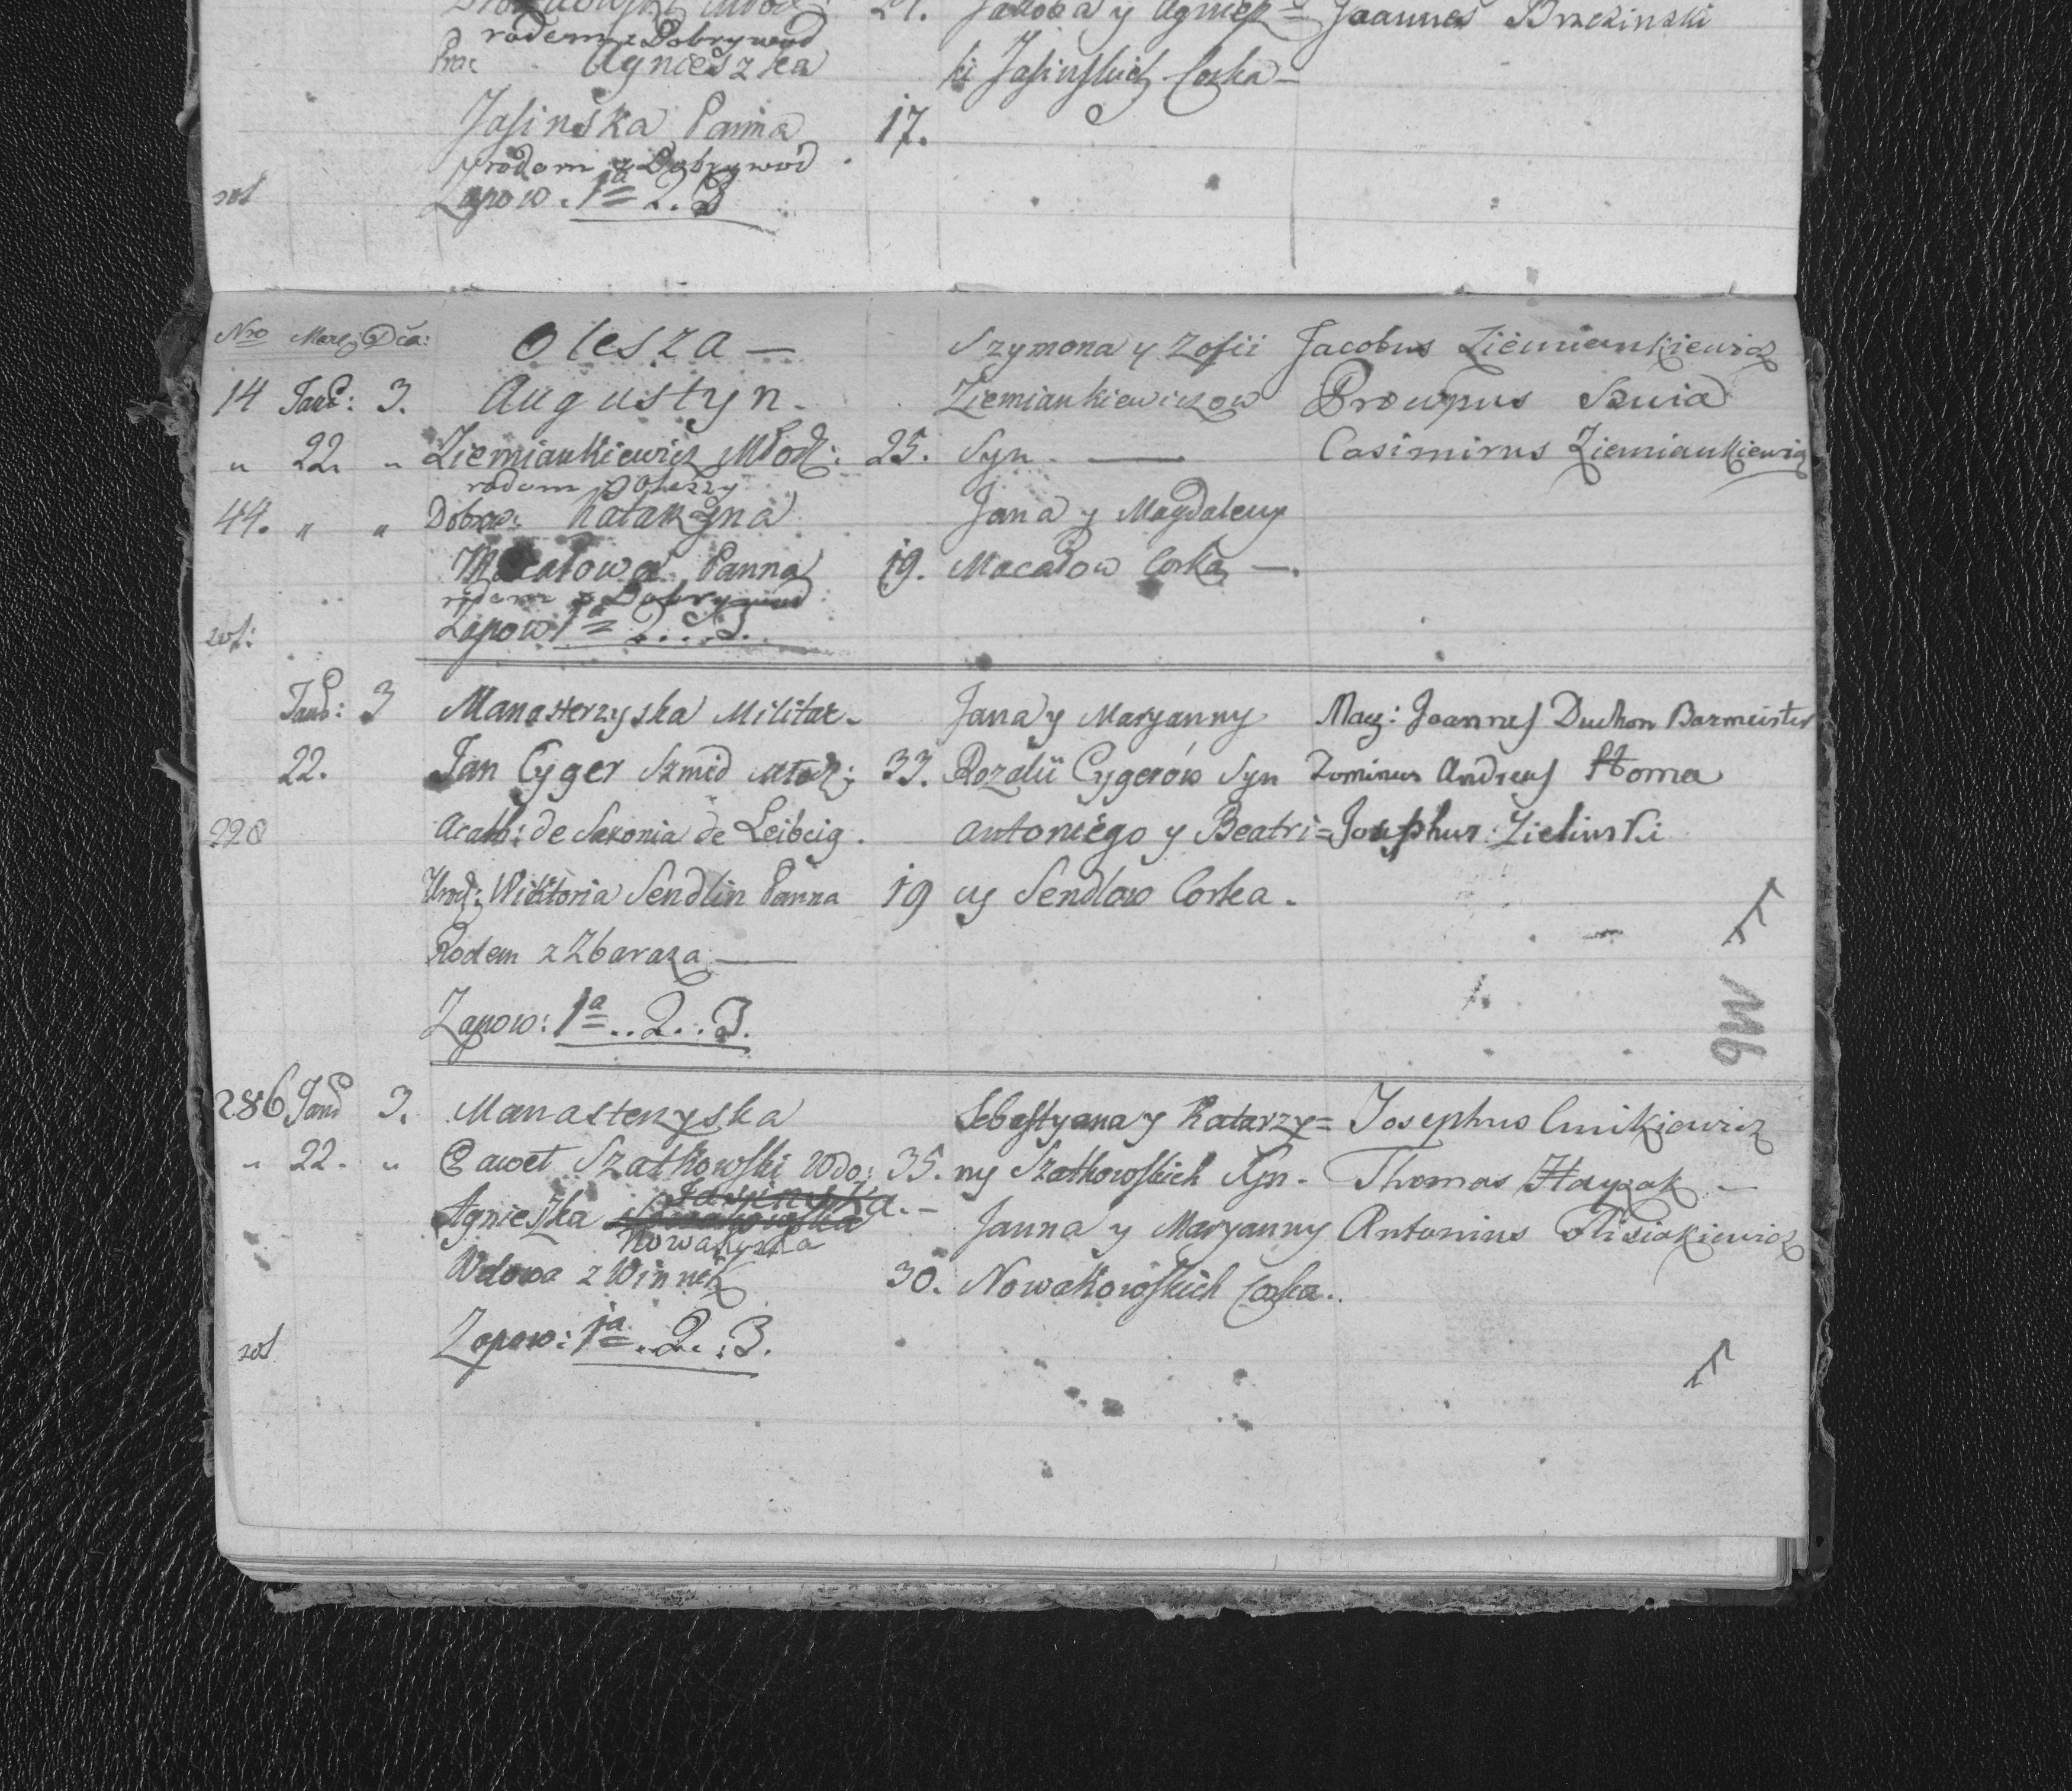 24. Jakoba y Agniesz= Joannes Brzezinski
rodem z Dobrywod
Prac Agnieszka ki Jasinskich Corka —
Jasinska Panna 17.
rodom z Dobrywod.
Zapow. 1a 2. 3
Nro Dia: Olesza — Szymona y Zofii Jacobus Ziemiankiewicz
14 Janu: 3. Augustyn. Ziemiankiewiczow Procupus
" 22. " Ziemiankiewicz Młodz: 25. Syn — Casimirus Ziemiankiewicz
rodom z Oleszy
44. " " Katarzyna Jana y Magdaleny
Macalowa Panna 19. Macalow Corka —.
rodom z Dobrywod
Zapow 1a 2 . . 3.
Janu: 3 Manasterzyska Militar. Jana y Maryanny Mag: Joannes Duchon Barmeister
22. Jan Cyger Szmid Młodz: 33. Rozalii Cygerów Syn Dominus Andreas Homa
220 Acath: de Saxonia de Leibcig. Antoniego y Beatri= Josephus Zielinski
Urodz: Wiktoria Sendlin Panna 19 cy Sendlow Corka.
Rodem z Zbaraza —
Zapow: 1a . . 2 . . 3.
286 Janu 3. Manasterzyska Sebastyana y Katarzy= Josephus Cmikiewicz
" 22. " Paweł Szatkowski Wdo: 35. ny Szatkowskich Syn. Thomas Hayzak —
Jasinska. —
Agnieszka Janna y Maryanny Antonius Flisiakiewicz
Nowakoska
Wdowa z Winnik 30. Nowakowskich Corka..
Zapow: 1a . . 2 . : 3.